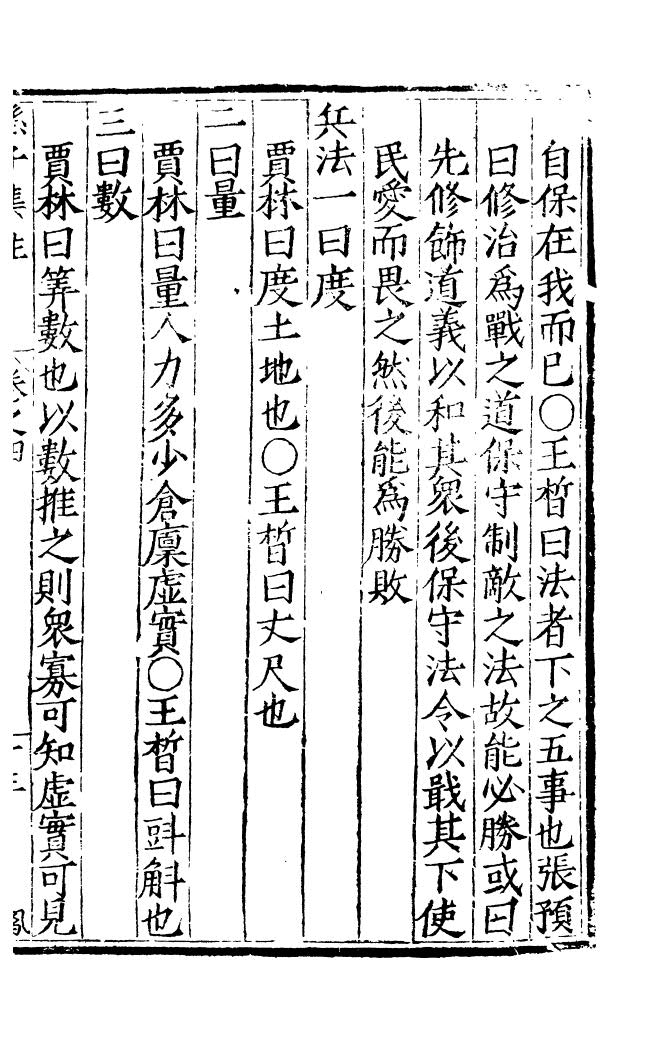 自保在我而已〇王晳曰法者下之五事也張預
曰修治爲戰之道保守制敵之法故能必勝或曰
先修飾道義以和其衆後保守法令以戢其下使
民愛而畏之然後能爲勝敗
兵法一曰度
賈林曰度土地也〇王晳曰丈尺也
二曰量
賈林曰量人力多少倉廩虛實〇王晳曰㪷斛也
三曰數
賈林曰筭數也以數推之則衆寡可知虛實可見
孫子集注 卷之四 十三